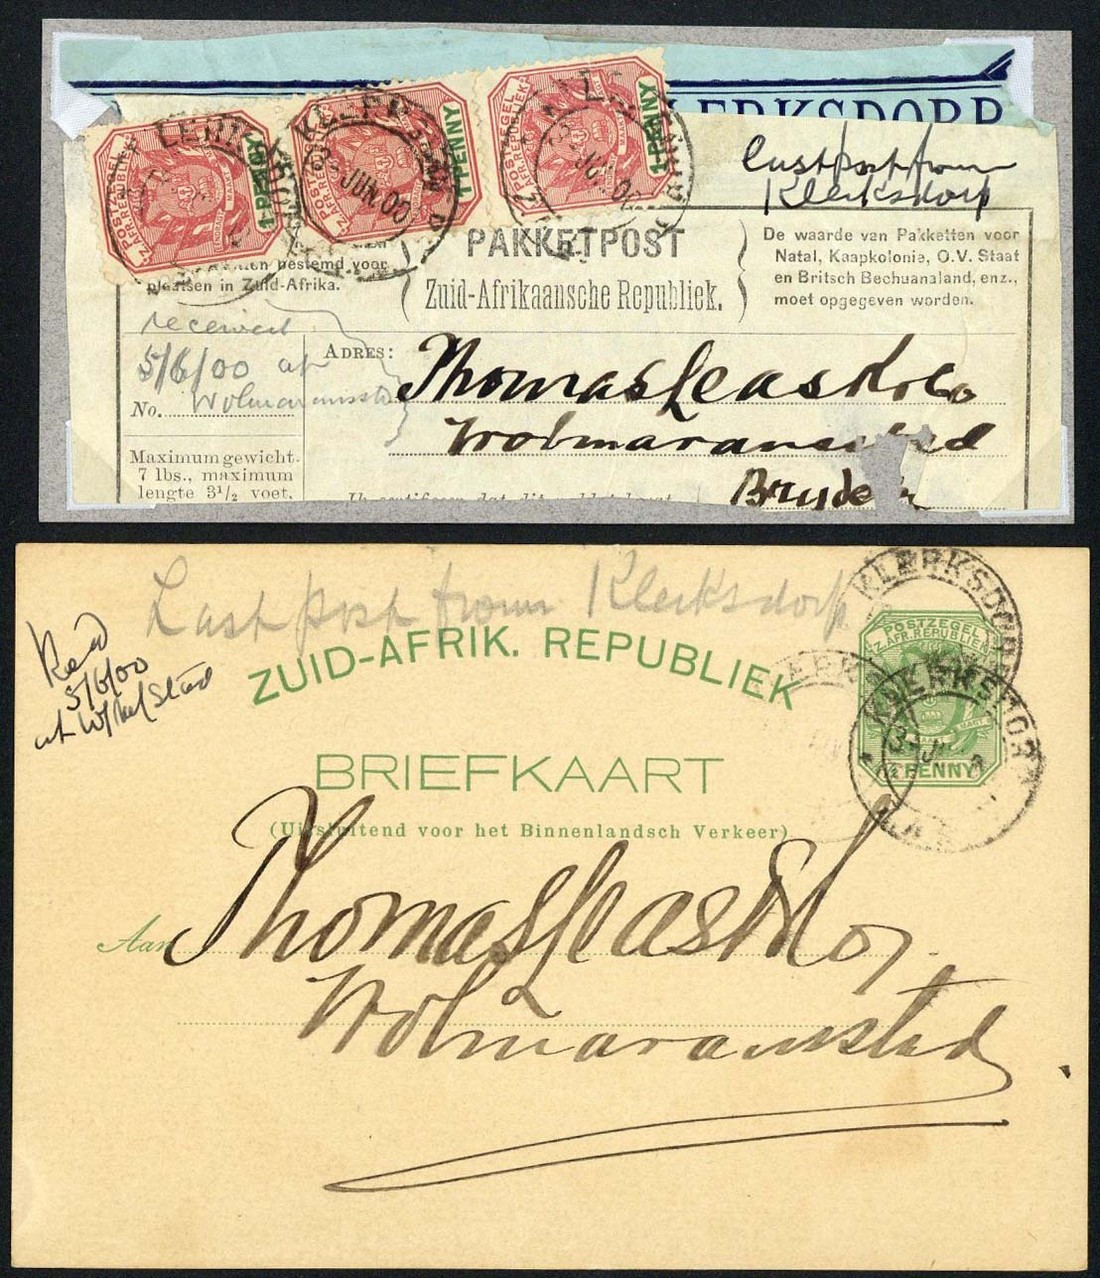 KLERKSDORP
POSTZEGEL
Z. AFR. REPUBLIEK
1 PENNY
KLERKSDORP
3 JUN 00
POSTZEGEL
Z. AFR. REPUBLIEK
1 PENNY
POSTZEGEL
Z. AFR. REPUBLIEK
1 PENNY
Last post from
Klerksdorp
bestemd voor
plaatsen in Zuid-Afrika.
PAKKETPOST
Zuid-Afrikaansche Republiek.
De waarde van Pakketten voor
Natal, Kaapkolonie, O.V. Staat
en Britsch Bechuanaland, enz.,
moet opgegeven worden.
received
5/6/00 at
No. Wolmaransstad
ADRES:
Thomas Leask & Co
Wolmaransstad
Maximum gewicht.
7 lbs., maximum
lengte 3½ voet,
Ik certifieer dat dit
Last post from Klerksdorp
Recd
5/6/00
at W/Stad
ZUID-AFRIK. REPUBLIEK
BRIEFKAART
(Uitsluitend voor het Binnenlandsch Verkeer)
POSTZEGEL
Z. AFR. REPUBLIEK
½ PENNY
KLERKSDORP
KLERKSDORP
Aan Thomas Leask & Co.
Wolmaransstad